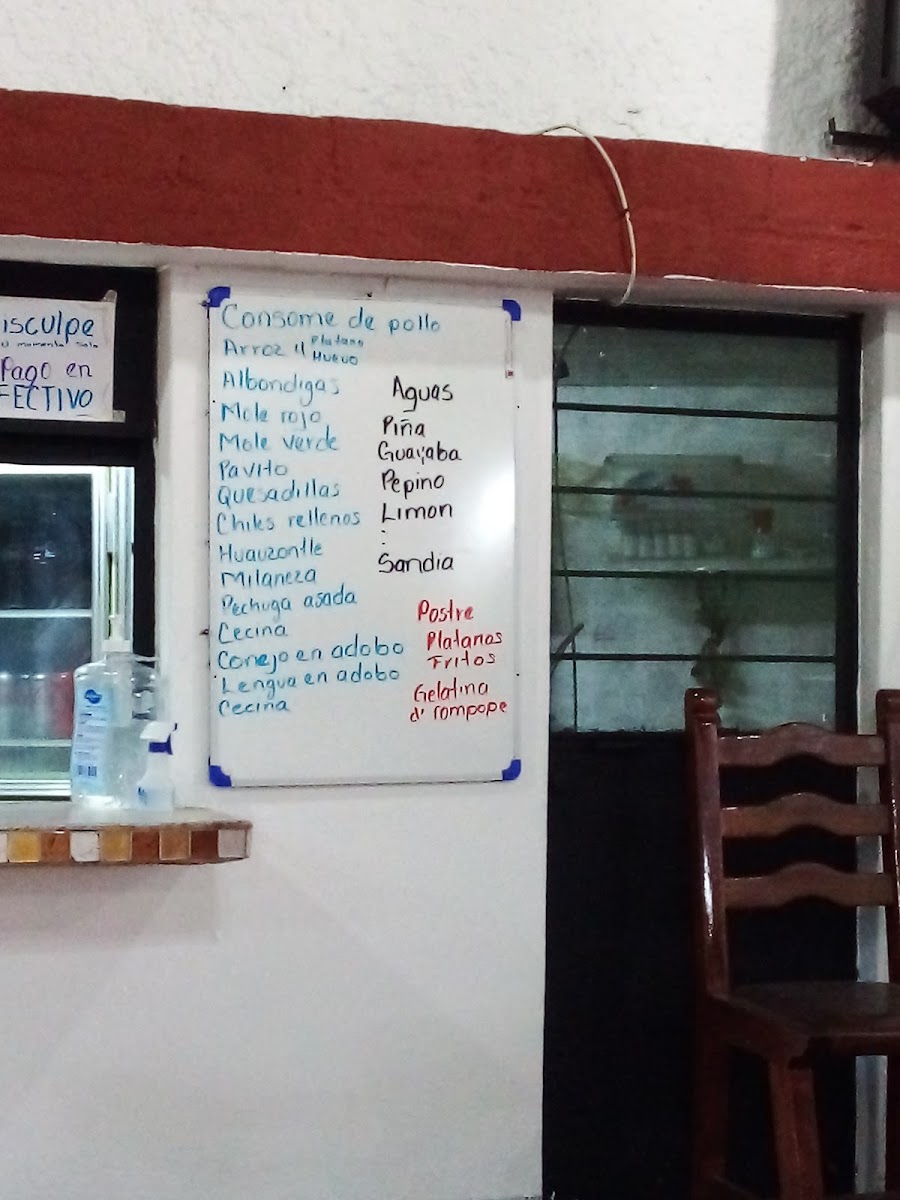 isculpe
Pago en
FECTIVO
Consome de pollo
Arroz
Platano
Huevo
Albondigas
Mole rojo
Mole verde
Pavito
Quesadillas
Chiles rellenos
Huauzontle
Milaneza
Pechuga asada
Cecina
Conejo en adobo
Lengua en adobo
Cecina
Aguas
Piña
Guayaba
Pepino
Limon
Sandia
Postre
Platanos
Fritos
Gelatina
d' rompope